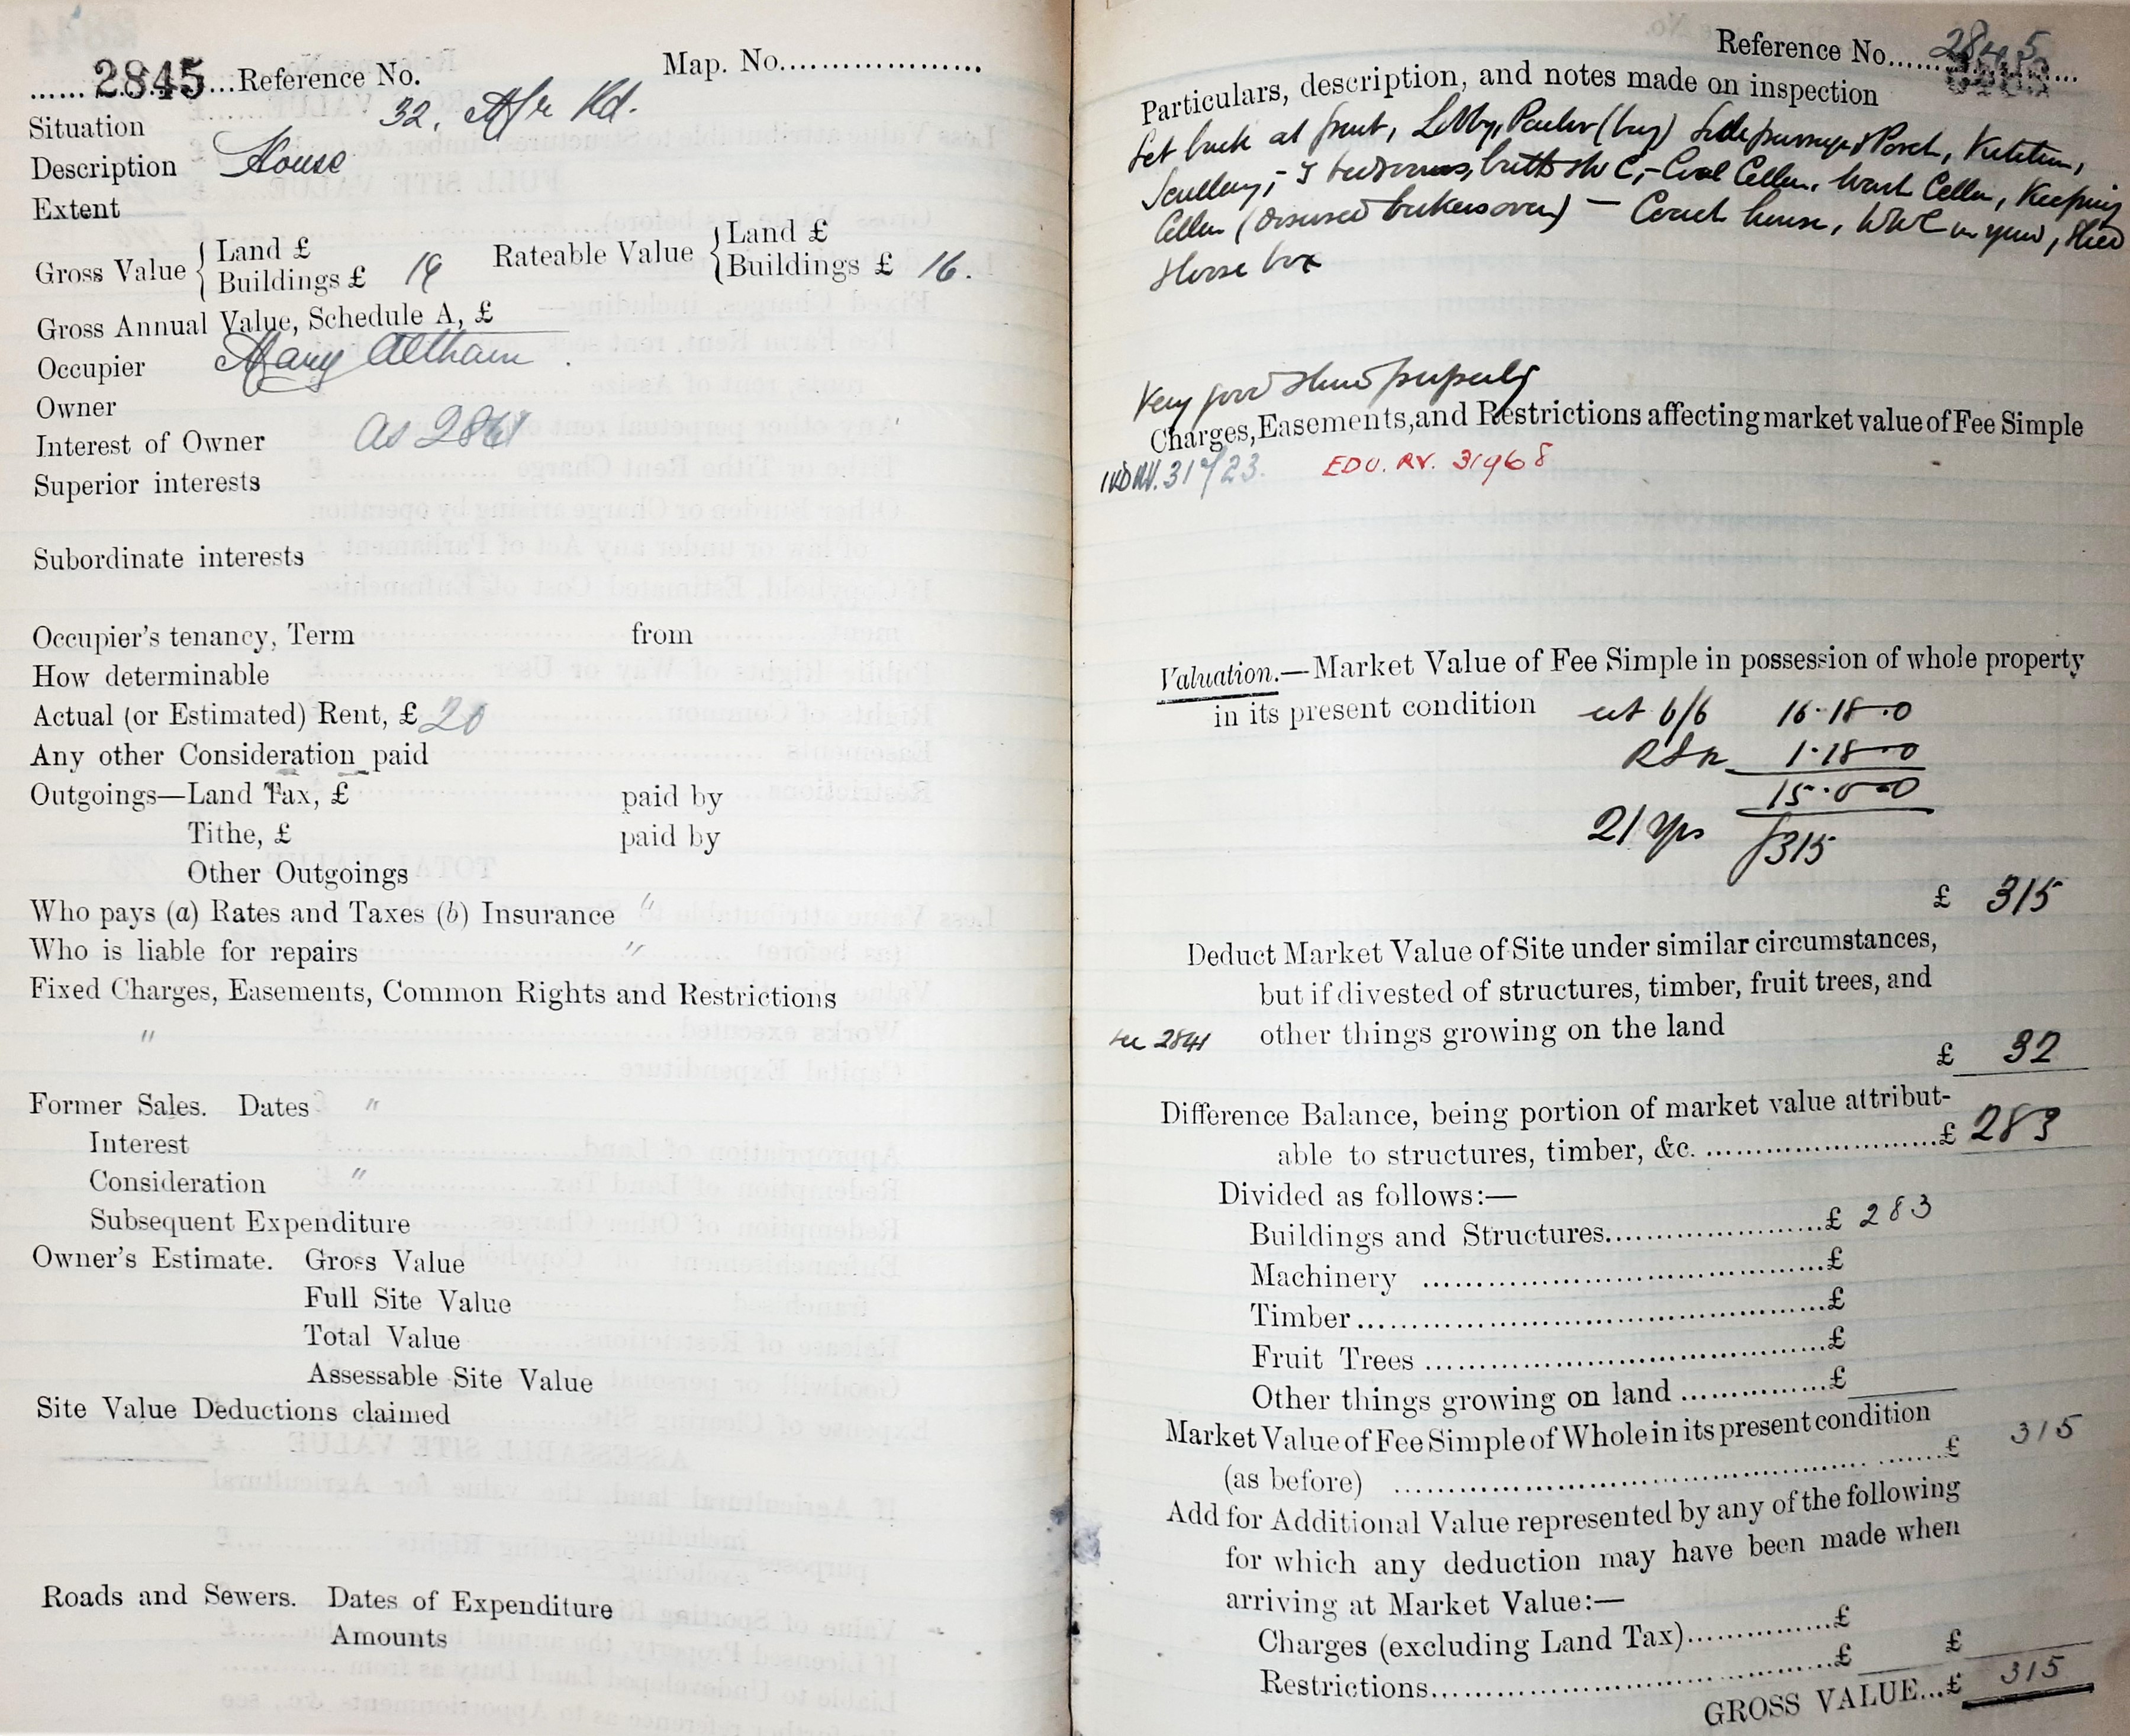 2845 Reference No. Map. No.
Situation 32, Rd.
Description House
Extent
Gross Value { Land £ Rateable Value { Land £
Buildings £ 19 Buildings £ 16.
Gross Annual Value, Schedule A, £
Occupier Mary Altham
Owner
Interest of Owner as
Superior interests
Subordinate interests
Occupier's tenancy, Term from
How determinable
Actual (or Estimated) Rent, £ 20
Any other Consideration paid
Outgoings—Land Tax, £ paid by
Tithe, £ paid by
Other Outgoings
Who pays (a) Rates and Taxes (b) Insurance "
Who is liable for repairs "
Fixed Charges, Easements, Common Rights and Restrictions
"
Former Sales. Dates "
Interest
Consideration "
Subsequent Expenditure
Owner's Estimate. Gross Value
Full Site Value
Total Value
Assessable Site Value
Site Value Deductions claimed
Roads and Sewers. Dates of Expenditure
Amounts
Reference No. 2845
Particulars, description, and notes made on inspection
Set back at front, Lobby, Parlor (bay) Side passage & Porch, Kitchen,
Scullery, - 3 bedrooms, bath & W C, - Coal Cellar, Wash Cellar, Keeping
Cellar (disused bakers oven) — Coach house, WWC in yard, Shed
& loose box
Very good stone property
Charges, Easements, and Restrictions affecting market value of Fee Simple
IVD RV. EDU. RV. 31968
Valuation.—Market Value of Fee Simple in possession of whole property
in its present condition est 6/6 16.18.0
R&R 1.18.0
15.0.0
21 Yps £315
£ 315
Deduct Market Value of Site under similar circumstances,
but if divested of structures, timber, fruit trees, and
see 2841 other things growing on the land
£ 32
Difference Balance, being portion of market value attribut-
able to structures, timber, &c. £ 283
Divided as follows:—
Buildings and Structures £ 283
Machinery £
Timber £
Fruit Trees £
Other things growing on land £
Market Value of Fee Simple of Whole in its present condition
(as before) £ 315
Add for Additional Value represented by any of the following
for which any deduction may have been made when
arriving at Market Value:—
Charges (excluding Land Tax) £
Restrictions £ £
GROSS VALUE...£ 315